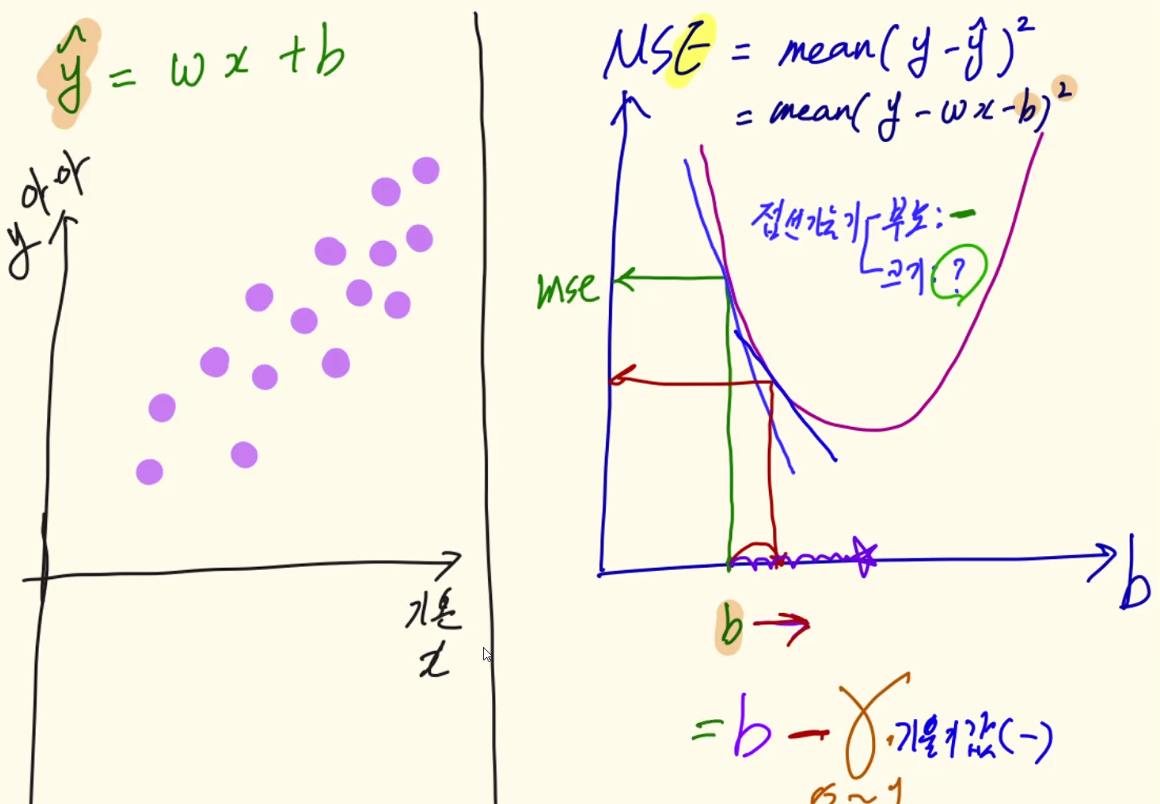 ŷ = wx + b
아아
y
기온
x
MSE = mean(y - ŷ)²
= mean(y - wx - b)²
접선기울기
부호: -
크기: ?
mse
b
b →
= b - γ · 기울기값(-)